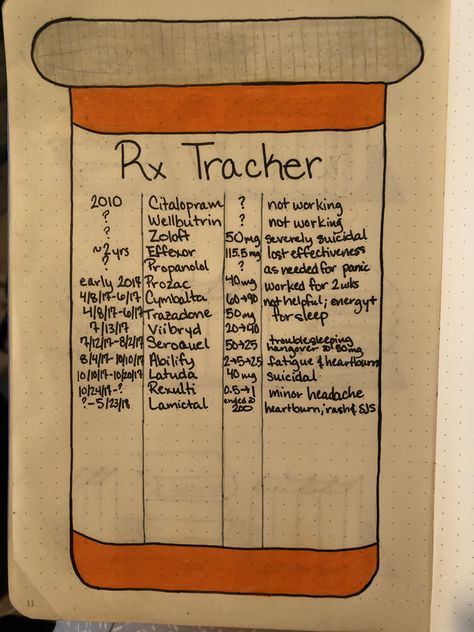 Rx Tracker
2010 Citalopram ? not working
? Wellbutrin ? not working
? Zoloft 50mg severely suicidal
~2 yrs Effexor 115.5mg lost effectiveness
? Propanolol ? as needed for panic
early 2017 Prozac 40mg worked for 2 wks
4/8/17-6/17 Cymbalta 60→90 not helpful; energy+
4/8/17-6/17 Trazadone 50mg for sleep
7/13/17 Viibryd 20→40
7/12/17-8/2/17 Seroquel 50→25 trouble sleeping
hangover @ 50mg
8/4/17-10/10/17 Abilify 2→5→2.5 fatigue & heartburn
10/10/17-10/20/17 Latuda 40mg suicidal
10/24/17-? Rexulti 0.5→1 minor headache
?-5/23/18 Lamictal ended @ 200 heartburn, rash & SJS
11